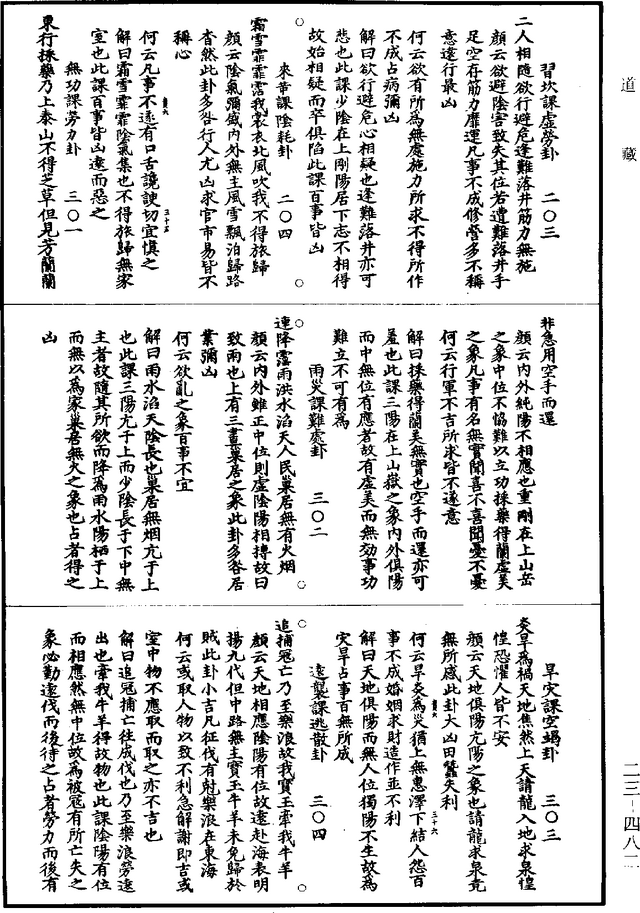 道藏
習坎課虛勞卦　二〇三
二人相隨欲行避危逢難落井筋力無施
顏云欲避陰害致失其位若遭難落井手
足空存筋力靡運凡事不成修營多不稱
意遠行最凶
何云欲有所為無處施力所求不得所作
不成占病彌凶
解曰欲行避危心相疑也逢難落井亦可
悲也此課少陰在上剛陽居下志不相得
故始相疑而卒俱陷此課百事皆凶
來葉課陰耗卦　二〇四
霜雪霏霏霑我裳衣北風吹我不得旅歸
顏云陰氣彌盛內外無主風雪飄泊歸路
杳然此卦多咎行人尤凶求官市易皆不
稱心
何云凡事不遂有口舌讒諛切宜慎之
解曰霜雪霏霏陰氣集也不得旅歸無家
室也此課百事皆凶遠而惡之
無功課勞力卦　三〇一
東行採藥乃上泰山不得芝草但見芳蘭蘭
非急用空手而還
顏云內外純陽不相應也重剛在上山岳
之象中位不恊難以立功採藥得蘭虛美
之象凡事有名無實聞喜不喜聞憂不憂
何云行軍不吉所求皆不遂意
解曰採藥得蘭美無實也空手而還亦可
羞也此課三陽在上山嶽之象內外俱陽
而中無位有應者故有虛美而無効事功
難立不可有為
雨災課難處卦　三〇二
連降霪雨洪水滔天人民巢居無有火烟
顏云內外雖正中位則虛陰陽相摶故曰
致雨也上有三畫巢居之象此卦多咎居
業彌凶
何云欲亂之象百事不宜
解曰雨水滔天陰長也巢居無烟亢于上
也此課三陽亢于上而少陰長于下中無
主者故隨其所欲而降為雨水陽栖于上
而無以為家巢居無火之象也占者得之
凶
旱災課空竭卦　三〇三
炎旱為禍天地焦然上天請龍入地求泉惶
惶恐懼人皆不安
顏云天地俱陽亢陽之象也請龍求泉竟
無所感此卦大凶田蠶失利
何云旱炎為災猶上無惠澤下結人怨百
事不成婚姻求財造作並不利
解曰天地俱陽而無人位獨陽不生故為
災旱占事百無所成
遠襲課逃散卦　三〇四
追捕寇亡乃至樂浪故我寶玉牽我牛羊
顏云天地相應陰陽有位故遠赴海表明
揚九代但中路無主寶玉牛羊未免歸於
賊此卦小吉凡征伐有尅樂浪在東海
何云或取人物以致不利急解謝即吉或
室中物不應取而取之亦不吉也
解曰追寇捕亡往成伐也乃至樂浪勞遠
出也牽我牛羊得故物也此課陰陽有位
而相應然無中位故為被寇有所亡失之
象必勤遠伐而後待之占者勞力而後有
二三—四八二